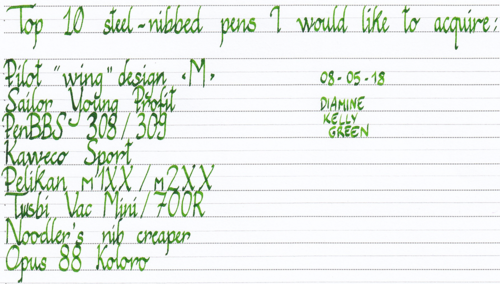 Top 10 steel-nibbed pens I would like to acquire:
Pilot "wing" design ·M·
08-05-18
Sailor Young Profit
DIAMINE
PenBBS 308/309
KELLY
GREEN
Kaweco Sport
Pelikan M1XX/M2XX
Twsbi Vac Mini/700R
Noodler's nib creaper
Opus 88 Koloro